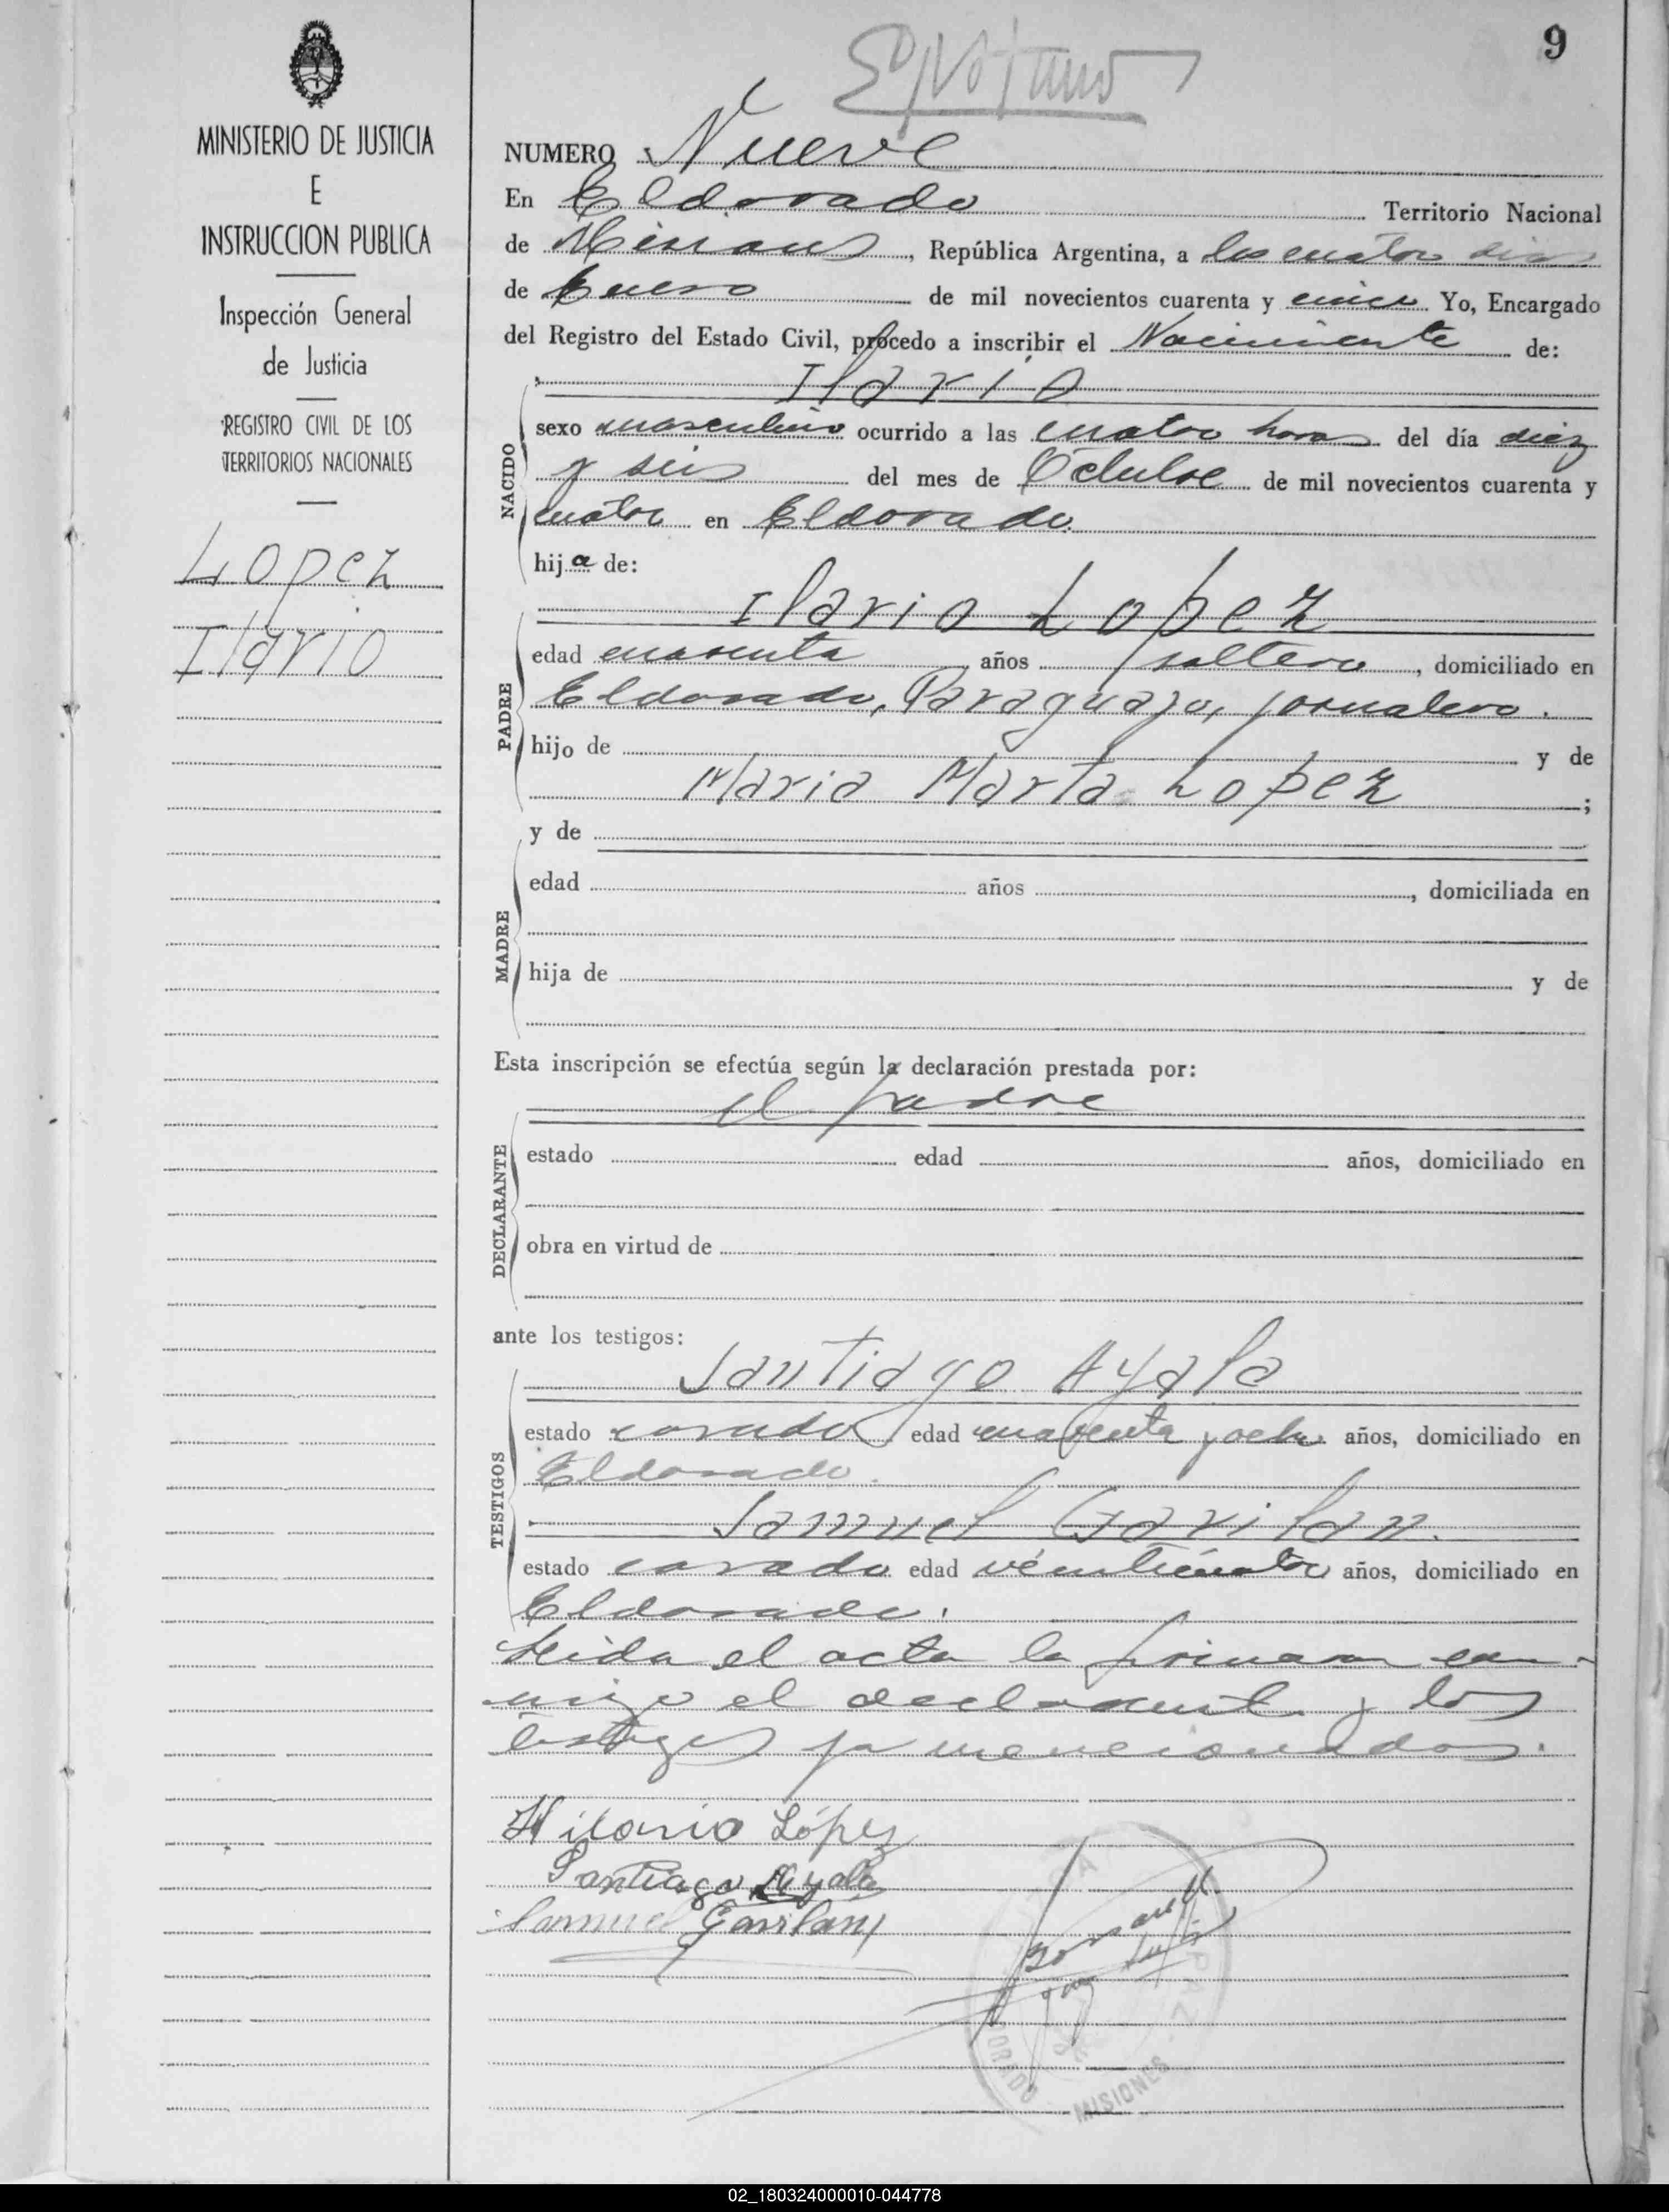 9
MINISTERIO DE JUSTICIA
E
INSTRUCCION PUBLICA
Inspección General
de Justicia
REGISTRO CIVIL DE LOS
TERRITORIOS NACIONALES
Lopez
Ilario
NUMERO Nueve
En Eldorado Territorio Nacional
de Misiones, República Argentina, a los cuatro dias
de Enero de mil novecientos cuarenta y cinco Yo, Encargado
del Registro del Estado Civil, procedo a inscribir el Nacimiento de:
Ilario
NACIDO
sexo masculino ocurrido a las cuatro horas del día diez
y seis del mes de Octubre de mil novecientos cuarenta y
cuatro en Eldorado.
hij o de:
Ilario Lopez
PADRE
edad cuarenta años soltero, domiciliado en
Eldorado, Paraguayo, jornalero.
hijo de y de
Maria Marta Lopez ;
MADRE
y de
edad años , domiciliada en
hija de y de
Esta inscripción se efectúa según la declaración prestada por:
el padre
DECLARANTE
estado edad años, domiciliado en
obra en virtud de
ante los testigos:
Santiago Ayala
TESTIGOS
estado casado edad cuarenta y ocho años, domiciliado en
Eldorado.
Samuel Gavilan.
estado casado edad veinticuatro años, domiciliado en
Eldorado.
Leida el acta la firmaron con-
migo el declarante y los
testigos ya mencionados.
Hilario López
Santiago Ayala
Samuel Gavilan
PAZ
DORADO
MISIONES
02_180324000010-044778